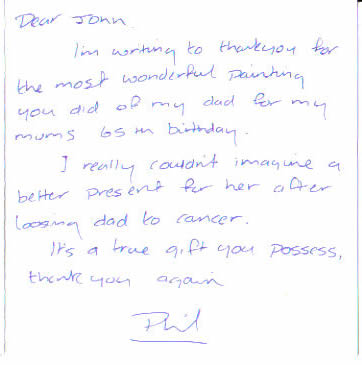 Dear John
I'm writing to thankyou for
the most wonderful painting
you did of my dad for my
mums 65th birthday.
I really couldn't imagine a
better present for her after
loosing dad to cancer.
It's a true gift you possess,
thank you again
Phil